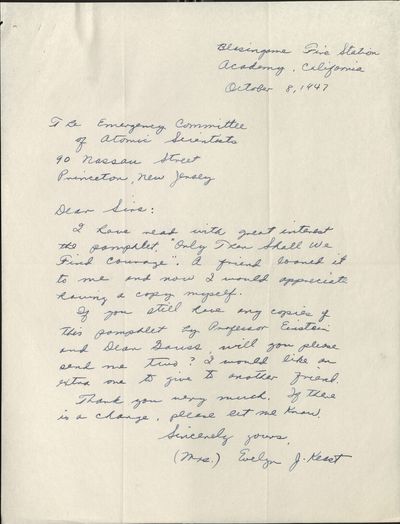 Blasingame Fire Station
Academy, California
October 8, 1947
The Emergency Committee
of Atomic Scientists
90 Nassau Street
Princeton, New Jersey
Dear Sirs:
I have read with great interest
the pamphlet, "Only Then Shall We
Find Courage". A friend loaned it
to me and now I would appreciate
having a copy myself.
If you still have any copies of
this pamphlet by Professor Einstein
and Dean Gauss, will you please
send me two? I would like an
extra one to give to another friend.
Thank you very much. If there
is a charge, please let me know.
Sincerely yours,
(Mrs.) Evelyn J. Keast